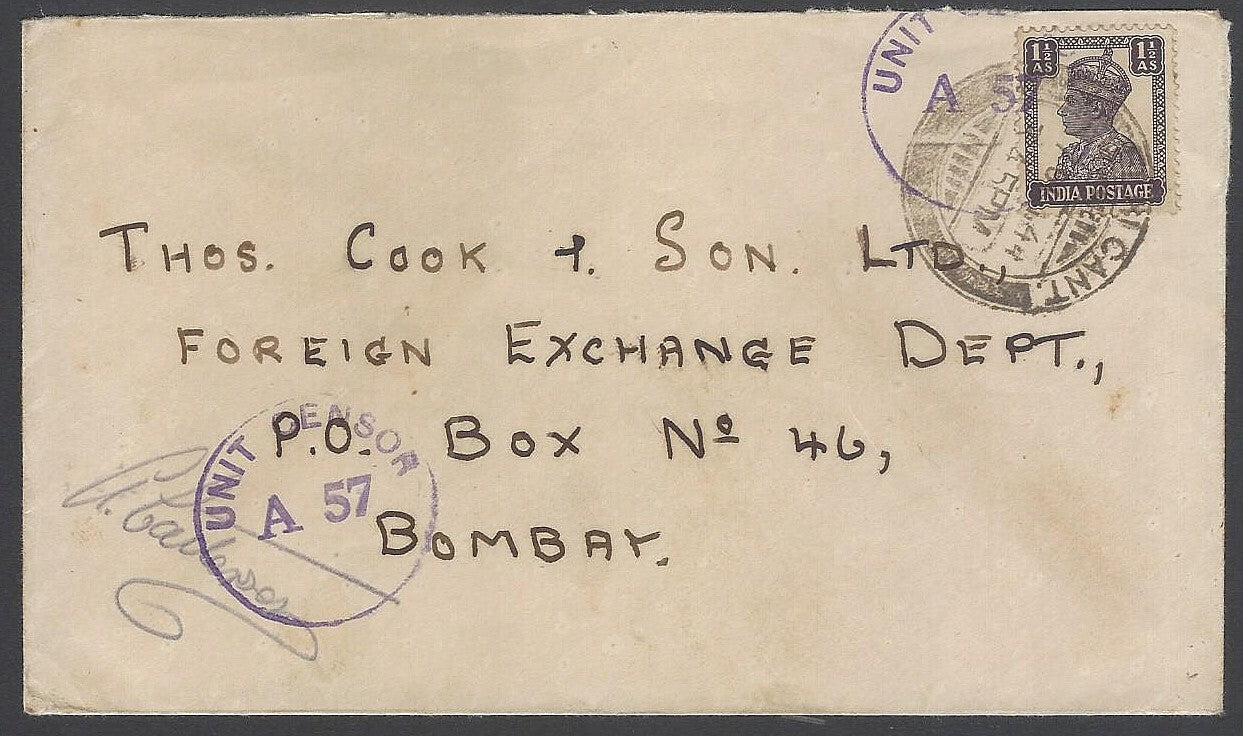 UNIT
A 57
1½ AS 1½ AS
INDIA POSTAGE
5PM
44
CANT.
THOS. COOK & SON. LTD.,
FOREIGN EXCHANGE DEPT.,
P.O. BOX Nº 46,
BOMBAY.
UNIT CENSOR
A 57